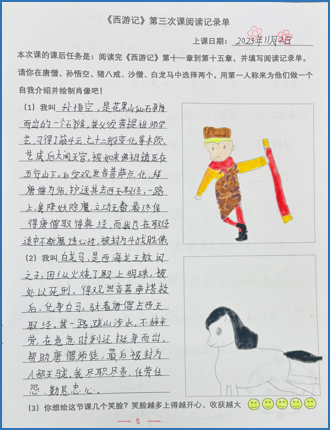 《西游记》第三次课阅读记录单
上课日期: 2023年11月2日
本次课的课后任务是：阅读完《西游记》第十一章到第十五章，并填写阅读记录单。
请你在唐僧、孙悟空、猪八戒、沙僧、白龙马中选择两个，用第一人称来为他们做一个
自我介绍并绘制肖像吧！
(1) 我叫 孙悟空，是花果山仙石身
而出的一个石猴，
艺，习得了筋斗云、七十二般变化等本领，
艺成后大闹天宫，被如来佛祖镇压在
五行山下，后受观世音菩萨点化，拜
唐僧为师，护送其去西天取经，一路
上，降妖除魔，立功无数，最终保
得唐僧取得真经，而我在取经
途中不断磨炼心性，被封为斗战胜佛
(2) 我叫 白龙马，是西海龙王敖闰
之子，因火烧了殿上明珠，被
处以死刑，得观世音菩萨搭救
后，化身白马，驮着唐僧去西天
取经，其一路，跋山涉水，不辞辛
劳，在危急时刻还挺身而出，
帮助唐僧师徒，最后被封为
八部天龙，我尽职尽责，任劳任
怨，勤恳忠心。
(3) 你想给这节课几个笑脸？笑脸越多上得越开心、收获越大
5